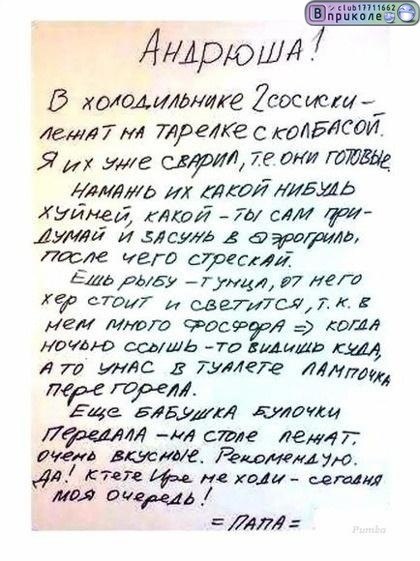 club17711662
Вприколе
Андрюша!
В холодильнике 2 сосиски –
лежат на тарелке с колбасой.
Я их уже сварил, т.е. они готовые.
Намажь их какой нибудь
хуйней, какой – ты сам при-
думай и засунь в аэрогриль,
после чего стрескай.
Ешь рыбу – тунца, от него
хер стоит и светится, т.к. в
нем много фосфора => когда
ночью ссышь – то видишь куда,
а то у нас в туалете лампочка
перегорела.
Еще бабушка булочки
передала – на столе лежат,
очень вкусные. Рекомендую.
Да! К тете Ире не ходи – сегодня
моя очередь!
= папа =
Pumba